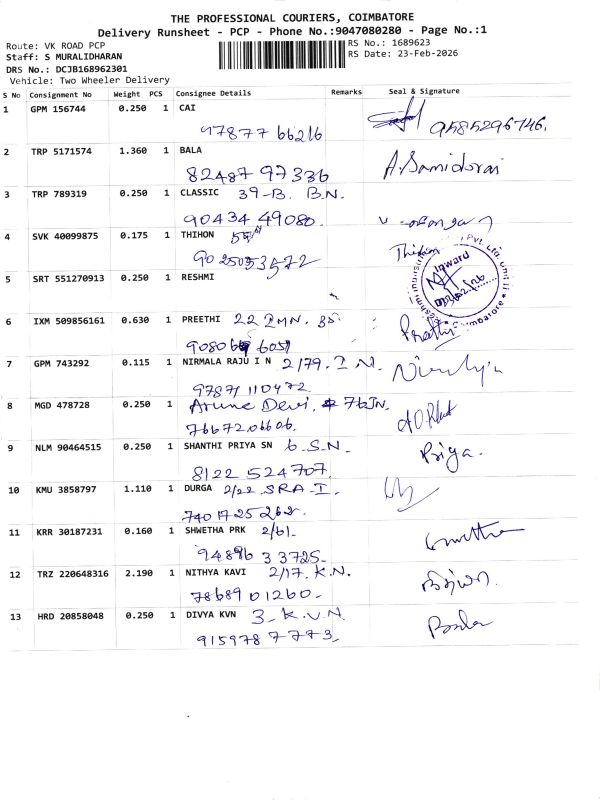 THE PROFESSIONAL COURIERS, COIMBATORE
Delivery Runsheet - PCP - Phone No.:9047080280 - Page No.:1
Route: VK ROAD PCP
RS No.: 1689623
Staff: S MURALIDHARAN
RS Date: 23-Feb-2026
DRS No.: DCJB168962301
Vehicle: Two Wheeler Delivery
S No Consignment No Weight PCS Consignee Details Remarks Seal & Signature
1 GPM 156744 0.250 1 CAI
97877 66216 9585296746.
2 TRP 5171574 1.360 1 BALA
82487 97336 A. Samidorai
3 TRP 789319 0.250 1 CLASSIC 39-B. B.N.
90434 49080.
4 SVK 40099875 0.175 1 THIHON
90 250 53572
5 SRT 551270913 0.250 1 RESHMI
Inward
6 IXM 509856161 0.630 1 PREETHI 22
Preethi
7 GPM 743292 0.115 1 NIRMALA RAJU I N 2/79. I.N.
97871 110472
8 MGD 478728 0.250 1 Aruna Devi, 76 JN.
76672 06606.
9 NLM 90464515 0.250 1 SHANTHI PRIYA SN 6. S.N.
8122 524707. Priya.
10 KMU 3858797 1.110 1 DURGA 2/22 SRA-I.
7401725262.
11 KRR 30187231 0.160 1 SHWETHA PRK 2/61.
94896 33725-
12 TRZ 220648316 2.190 1 NITHYA KAVI 2/17. K.N.
78689 01260.
13 HRD 20858048 0.250 1 DIVYA KVN 3-K.V.N.
9159787773-